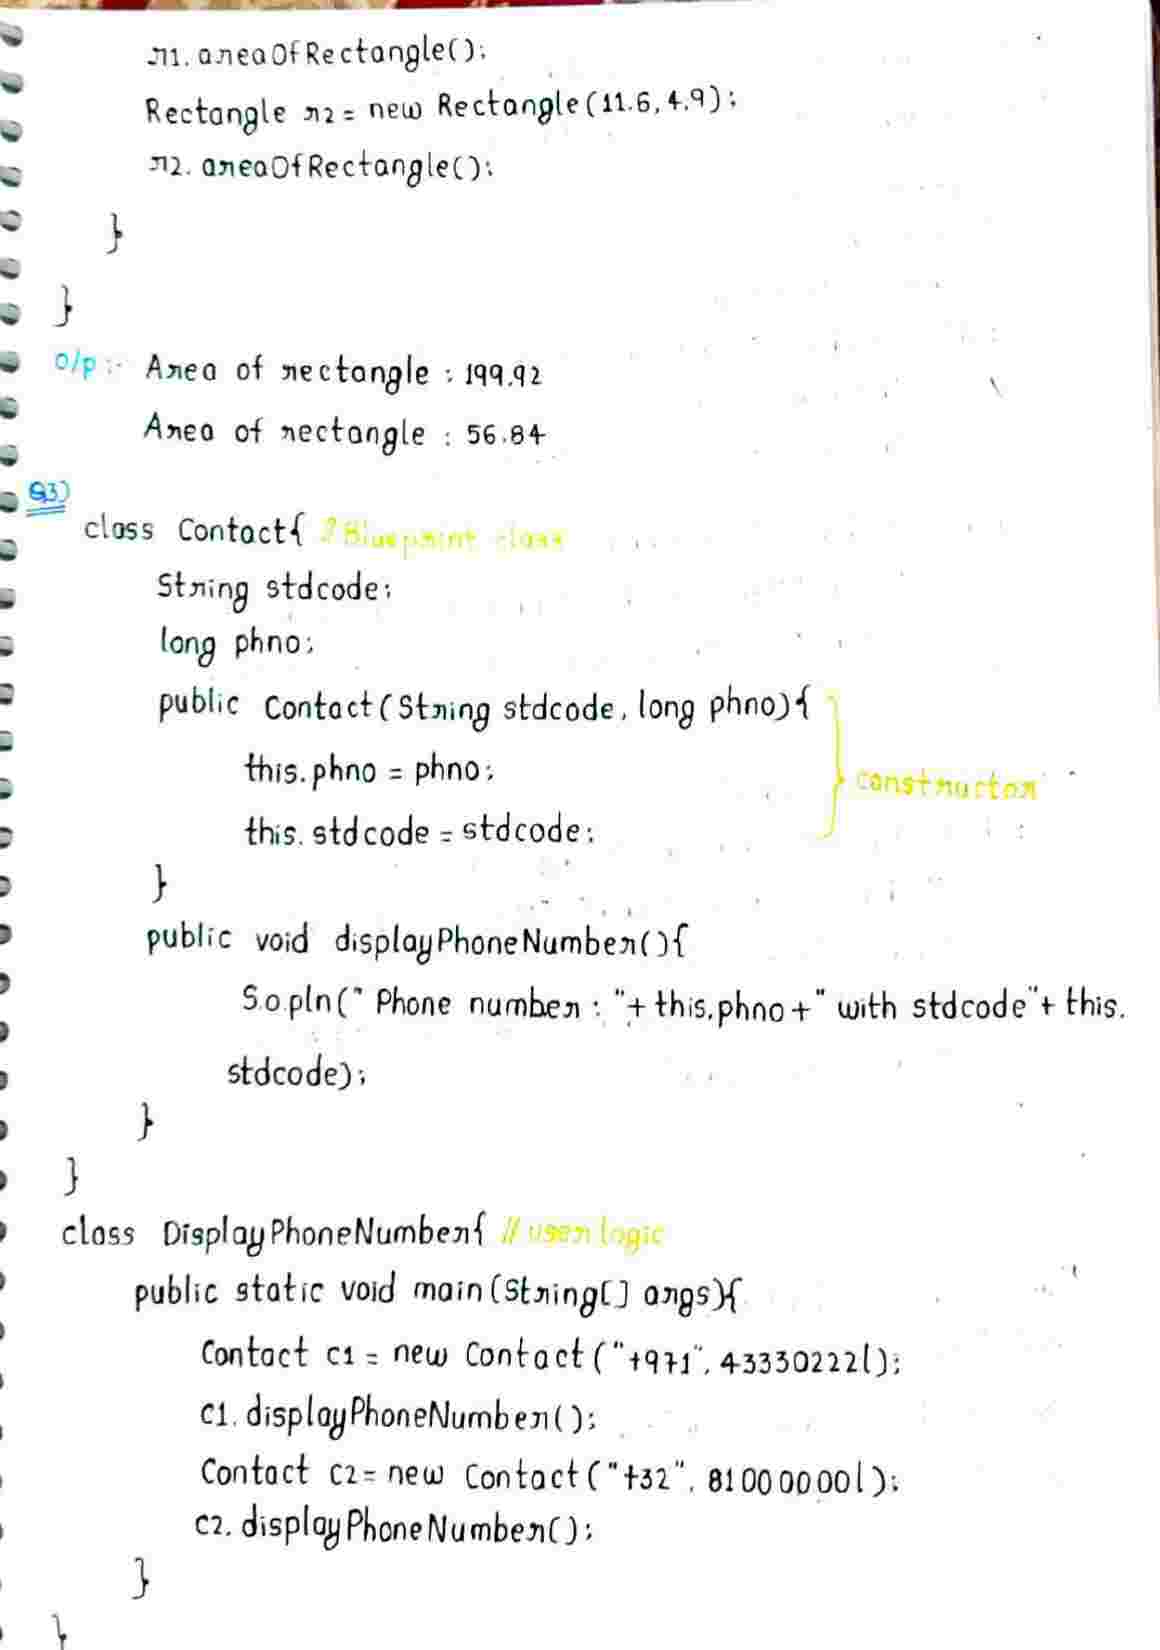 r1. areaOfRectangle();
Rectangle r2 = new Rectangle(11.6, 4.9);
r2. areaOfRectangle();
}
}
o/p :- Area of rectangle : 199.92
Area of rectangle : 56.84
Q3)
class Contact{ // Blueprint class
String stdcode;
long phno;
public Contact(String stdcode, long phno){
this.phno = phno;
this.stdcode = stdcode;
constructor
}
public void displayPhoneNumber(){
S.o.pln(" Phone number : "+ this.phno +" with stdcode"+ this.
stdcode);
}
}
class DisplayPhoneNumber{ // user logic
public static void main(String[] args){
Contact c1 = new Contact("+971", 43330222l);
c1. displayPhoneNumber();
Contact c2 = new Contact("+32", 81000000l);
c2. displayPhoneNumber();
}
}